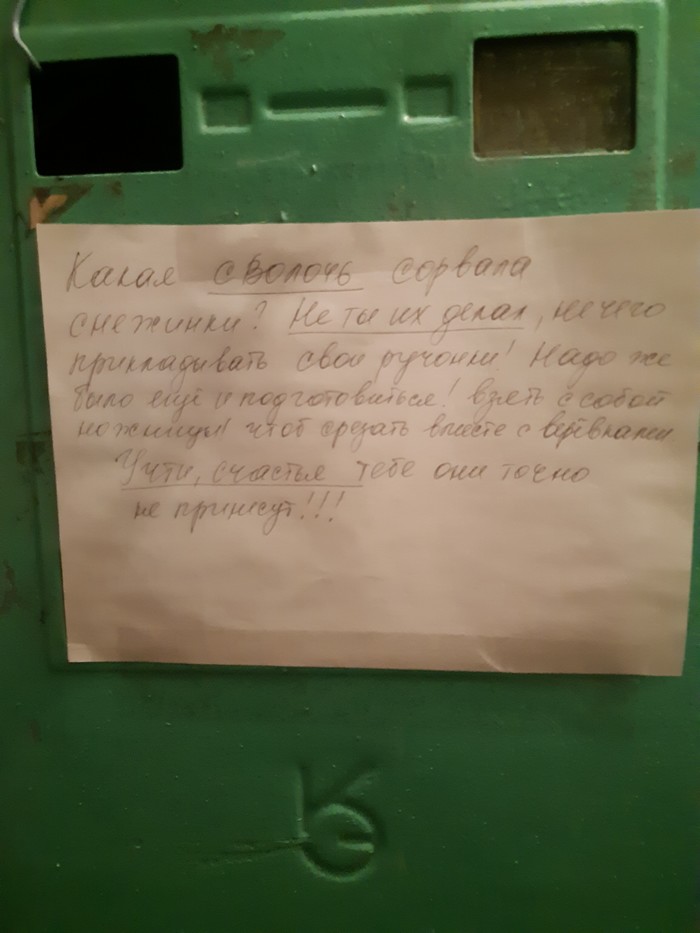 Какая сволочь сорвала
снежинки? Не ты их делал, нечего
прикладывать свои ручонки! Надо же
было ещё и подготовиться! взять с собой
ножницы! чтоб срезать вместе с верёвками.
Учти, счастья тебе они точно
не принесут!!!